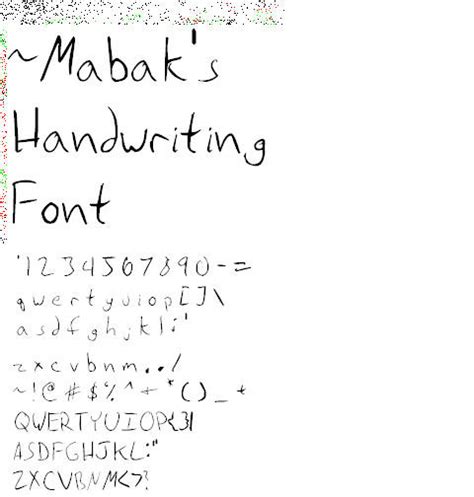 ~Mabak's
Handwriting
Font
'1234567890-=
qwertyuiop[]\
asdfghjkl;'
zxcvbnm,./
~!@#$%^+*()_+
QWERTYUIOP{}|
ASDFGHJKL:"
ZXCVBNM<>?